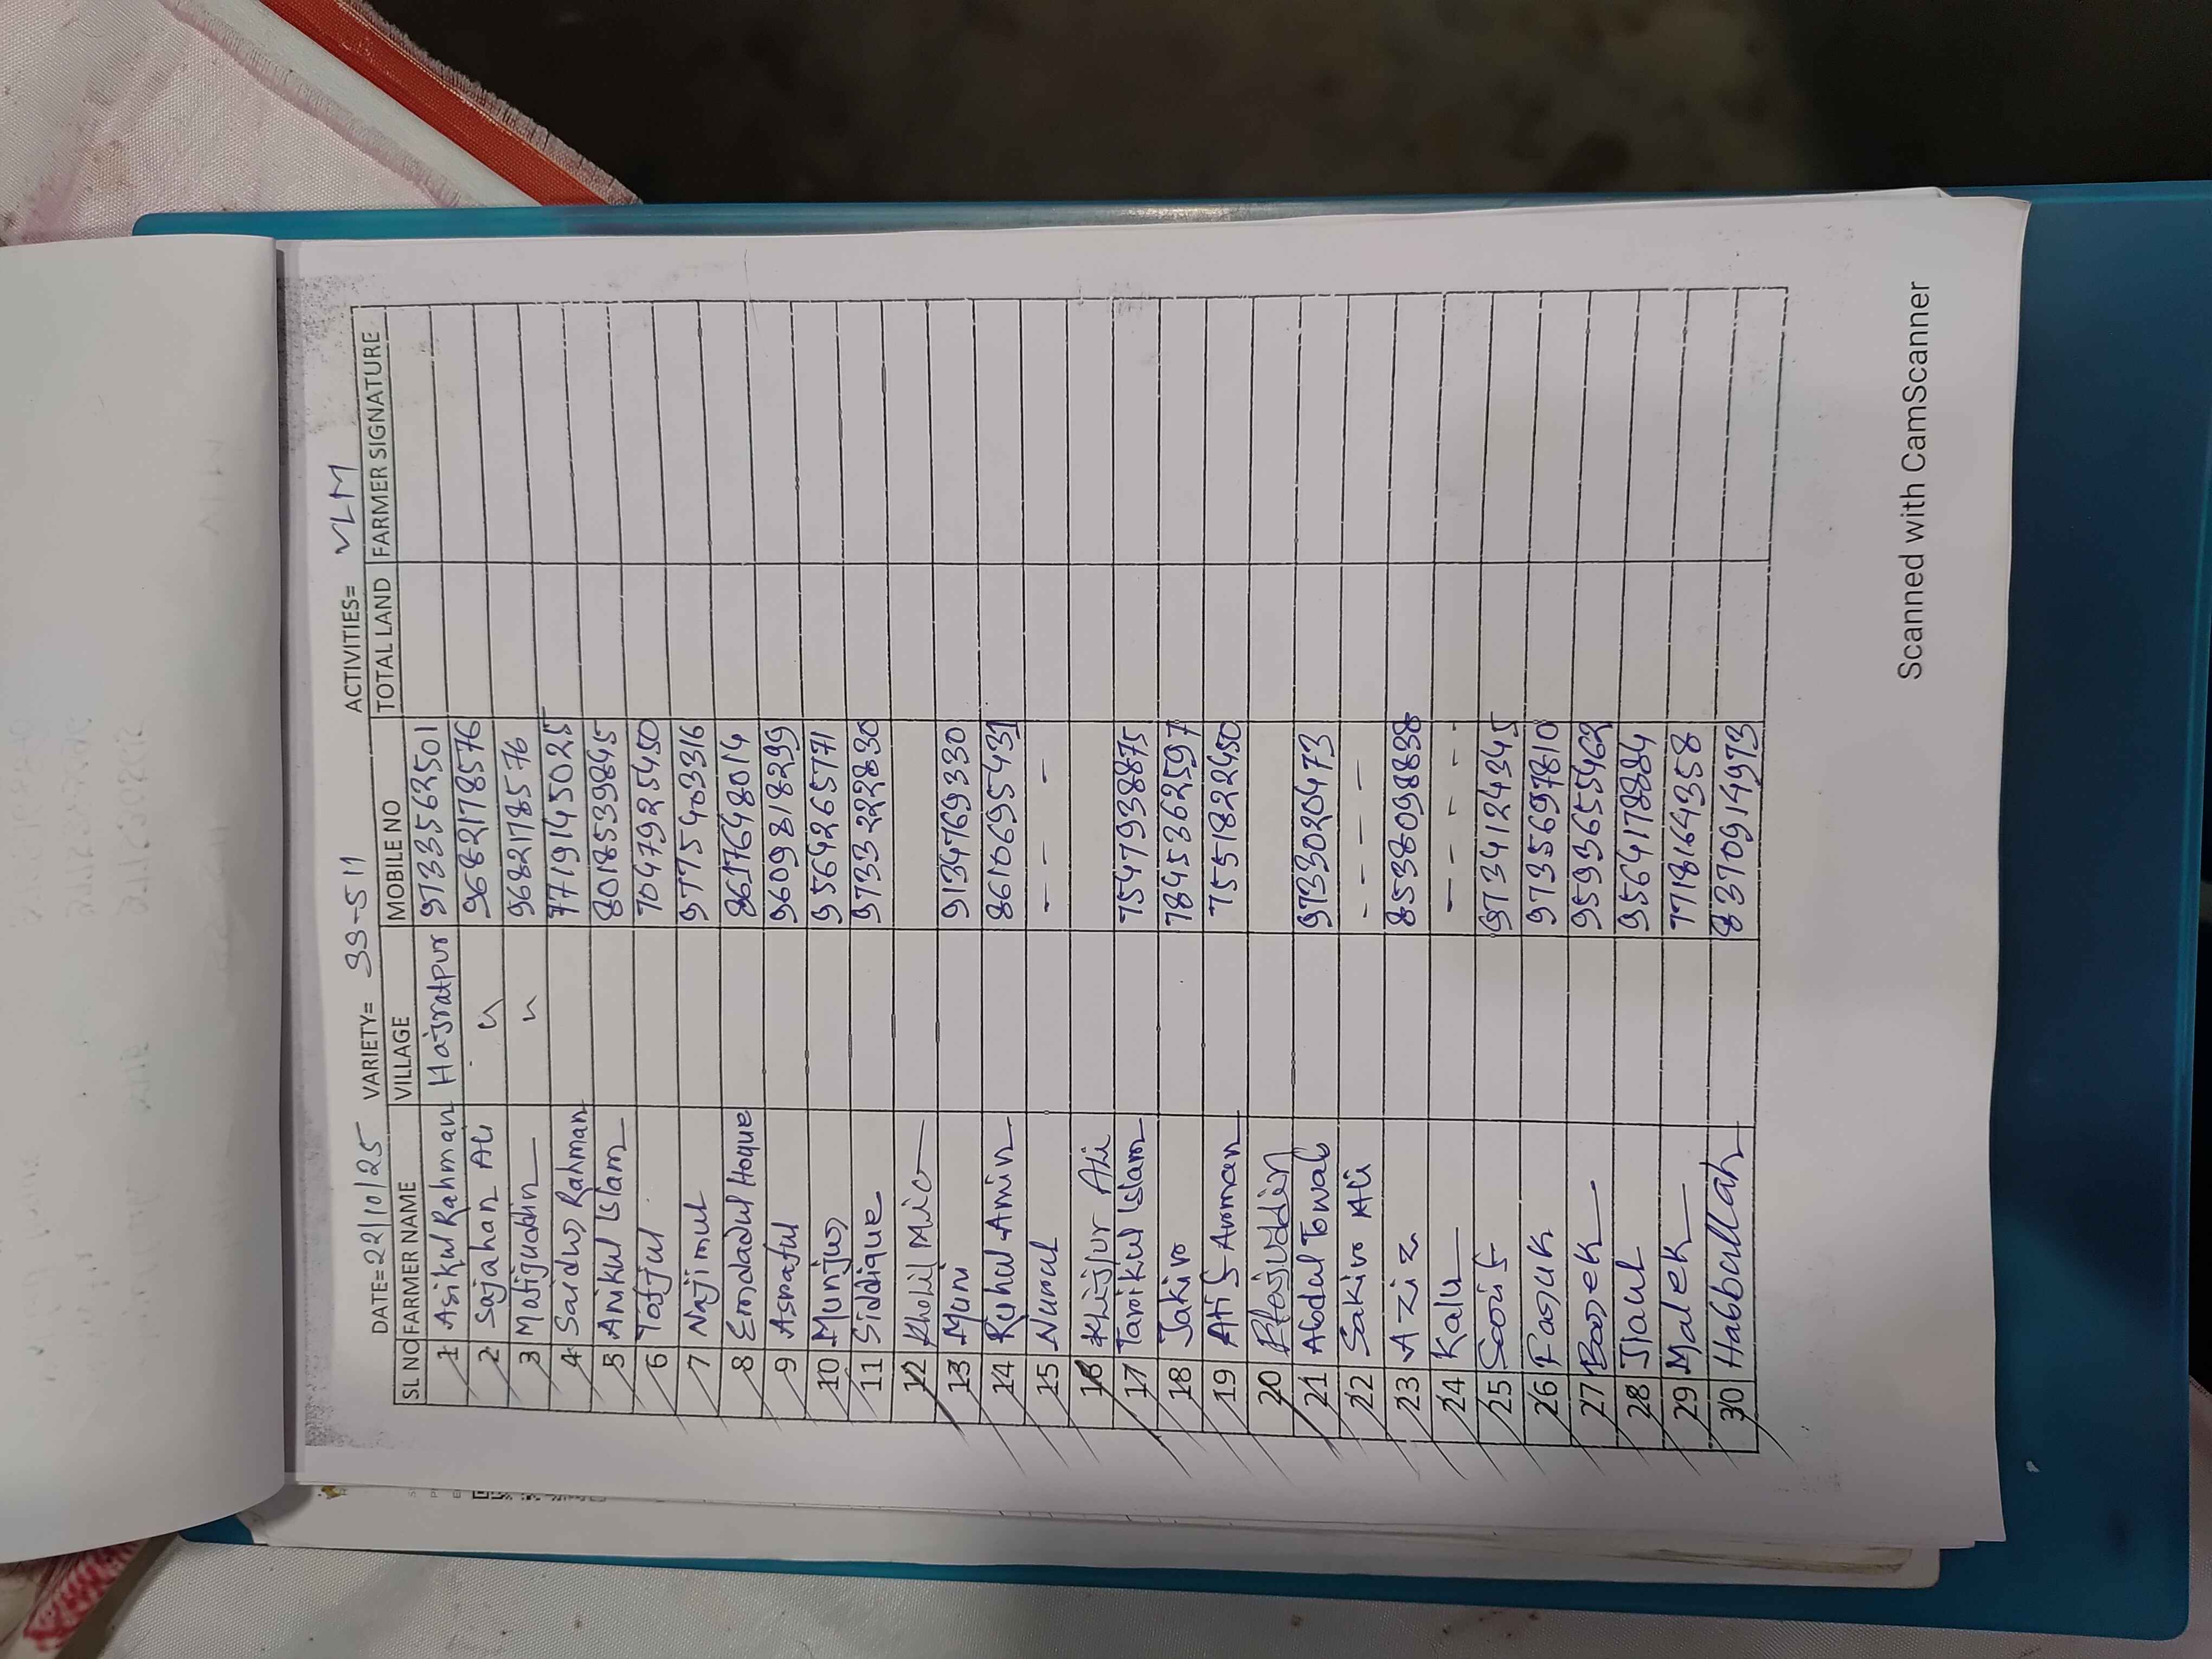 DATE= 22/10/25 VARIETY= SS-511 ACTIVITIES= VLM
SL NO FARMER NAME VILLAGE MOBILE NO TOTAL LAND FARMER SIGNATURE
1 Asikul Rahman Hajratpur 9733562501
2 Sajahan Ali " 9682178576
3 Mafijuddin " 9682178576
4 Saidur Rahman 7719145025
5 Anikul Islam 8018539845
6 Tafijul 7047925450
7 Najimul 9775403316
8 Emdadul Hoque 8617648014
9 Asraful 9609818299
10 Munjur 9564265771
11 Siddique 9733222830
12 Kholil Mia
13 Muni 9134769330
14 Ruhul Amin 8610695431
15 Nurul - - - -
16 Khijur Ali
17 Tarikul Islam 7547938875
18 Jakir 7845362597
19 Atif Arman 7551822450
20
21 Abdul Towab 9733020473
22 Sakir Ali - - - - -
23 Aziz 8538098838
24 Kalu - - - - - -
25 Sarif 9734124345
26 Faruk 9735697810
27 Barek 9593655462
28 Jiaul 9564178884
29 Malek 7718164358
30 Habbullah 8370914973
Scanned with CamScanner